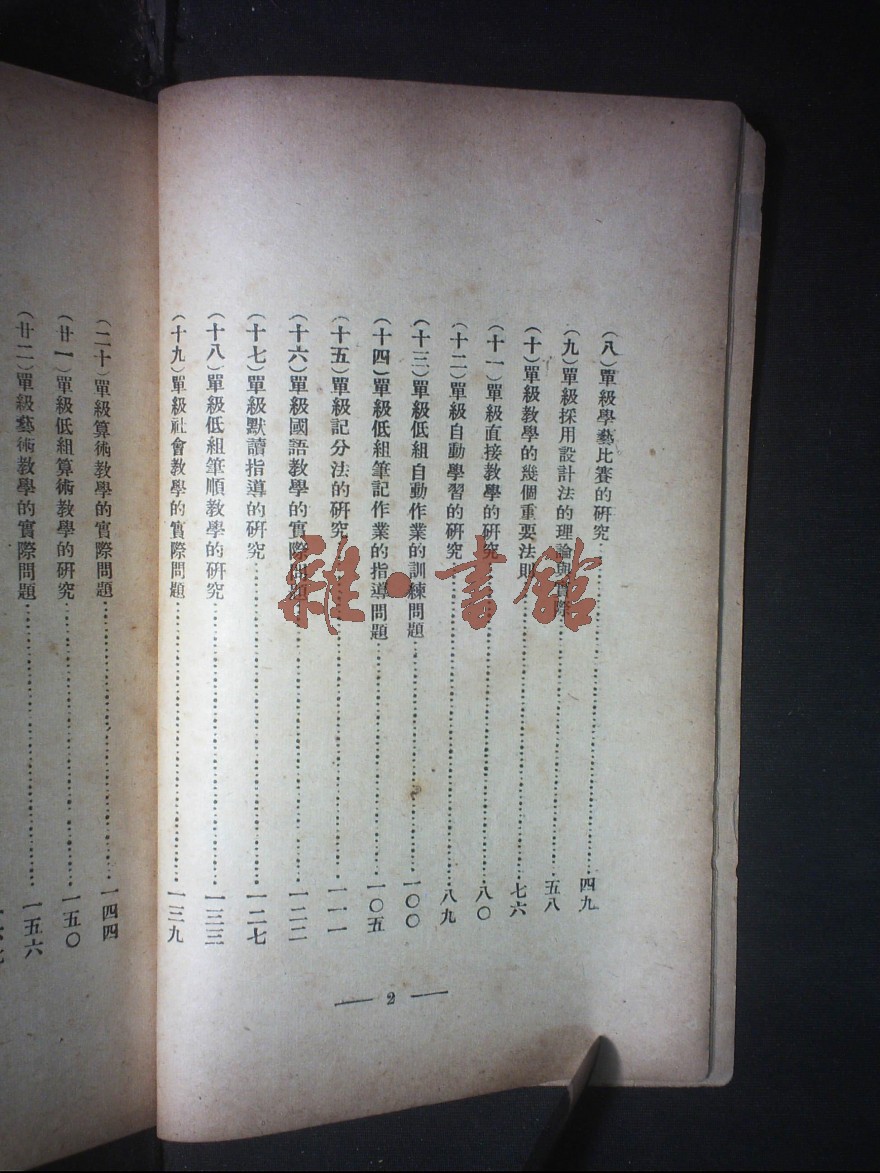 （八）單級學藝比賽的研究……四九
（九）單級採用設計法的理論與實際……五八
（十）單級教學的幾個重要法則……七六
（十一）單級直接教學的研究……八〇
（十二）單級自動學習的研究……八九
（十三）單級低組自動作業的訓練問題……一〇〇
（十四）單級低組筆記作業的指導問題……一〇五
（十五）單級記分法的研究……一一一
（十六）單級國語教學的實際問題……一二二
（十七）單級默讀指導的研究……一二七
（十八）單級低組筆順教學的研究……一三三
（十九）單級社會教學的實際問題……一三九
— 2 —
（二十）單級算術教學的實際問題……一四四
（廿一）單級低組算術教學的研究……一五〇
（廿二）單級藝術教學的實際問題……一五六
雜·書館